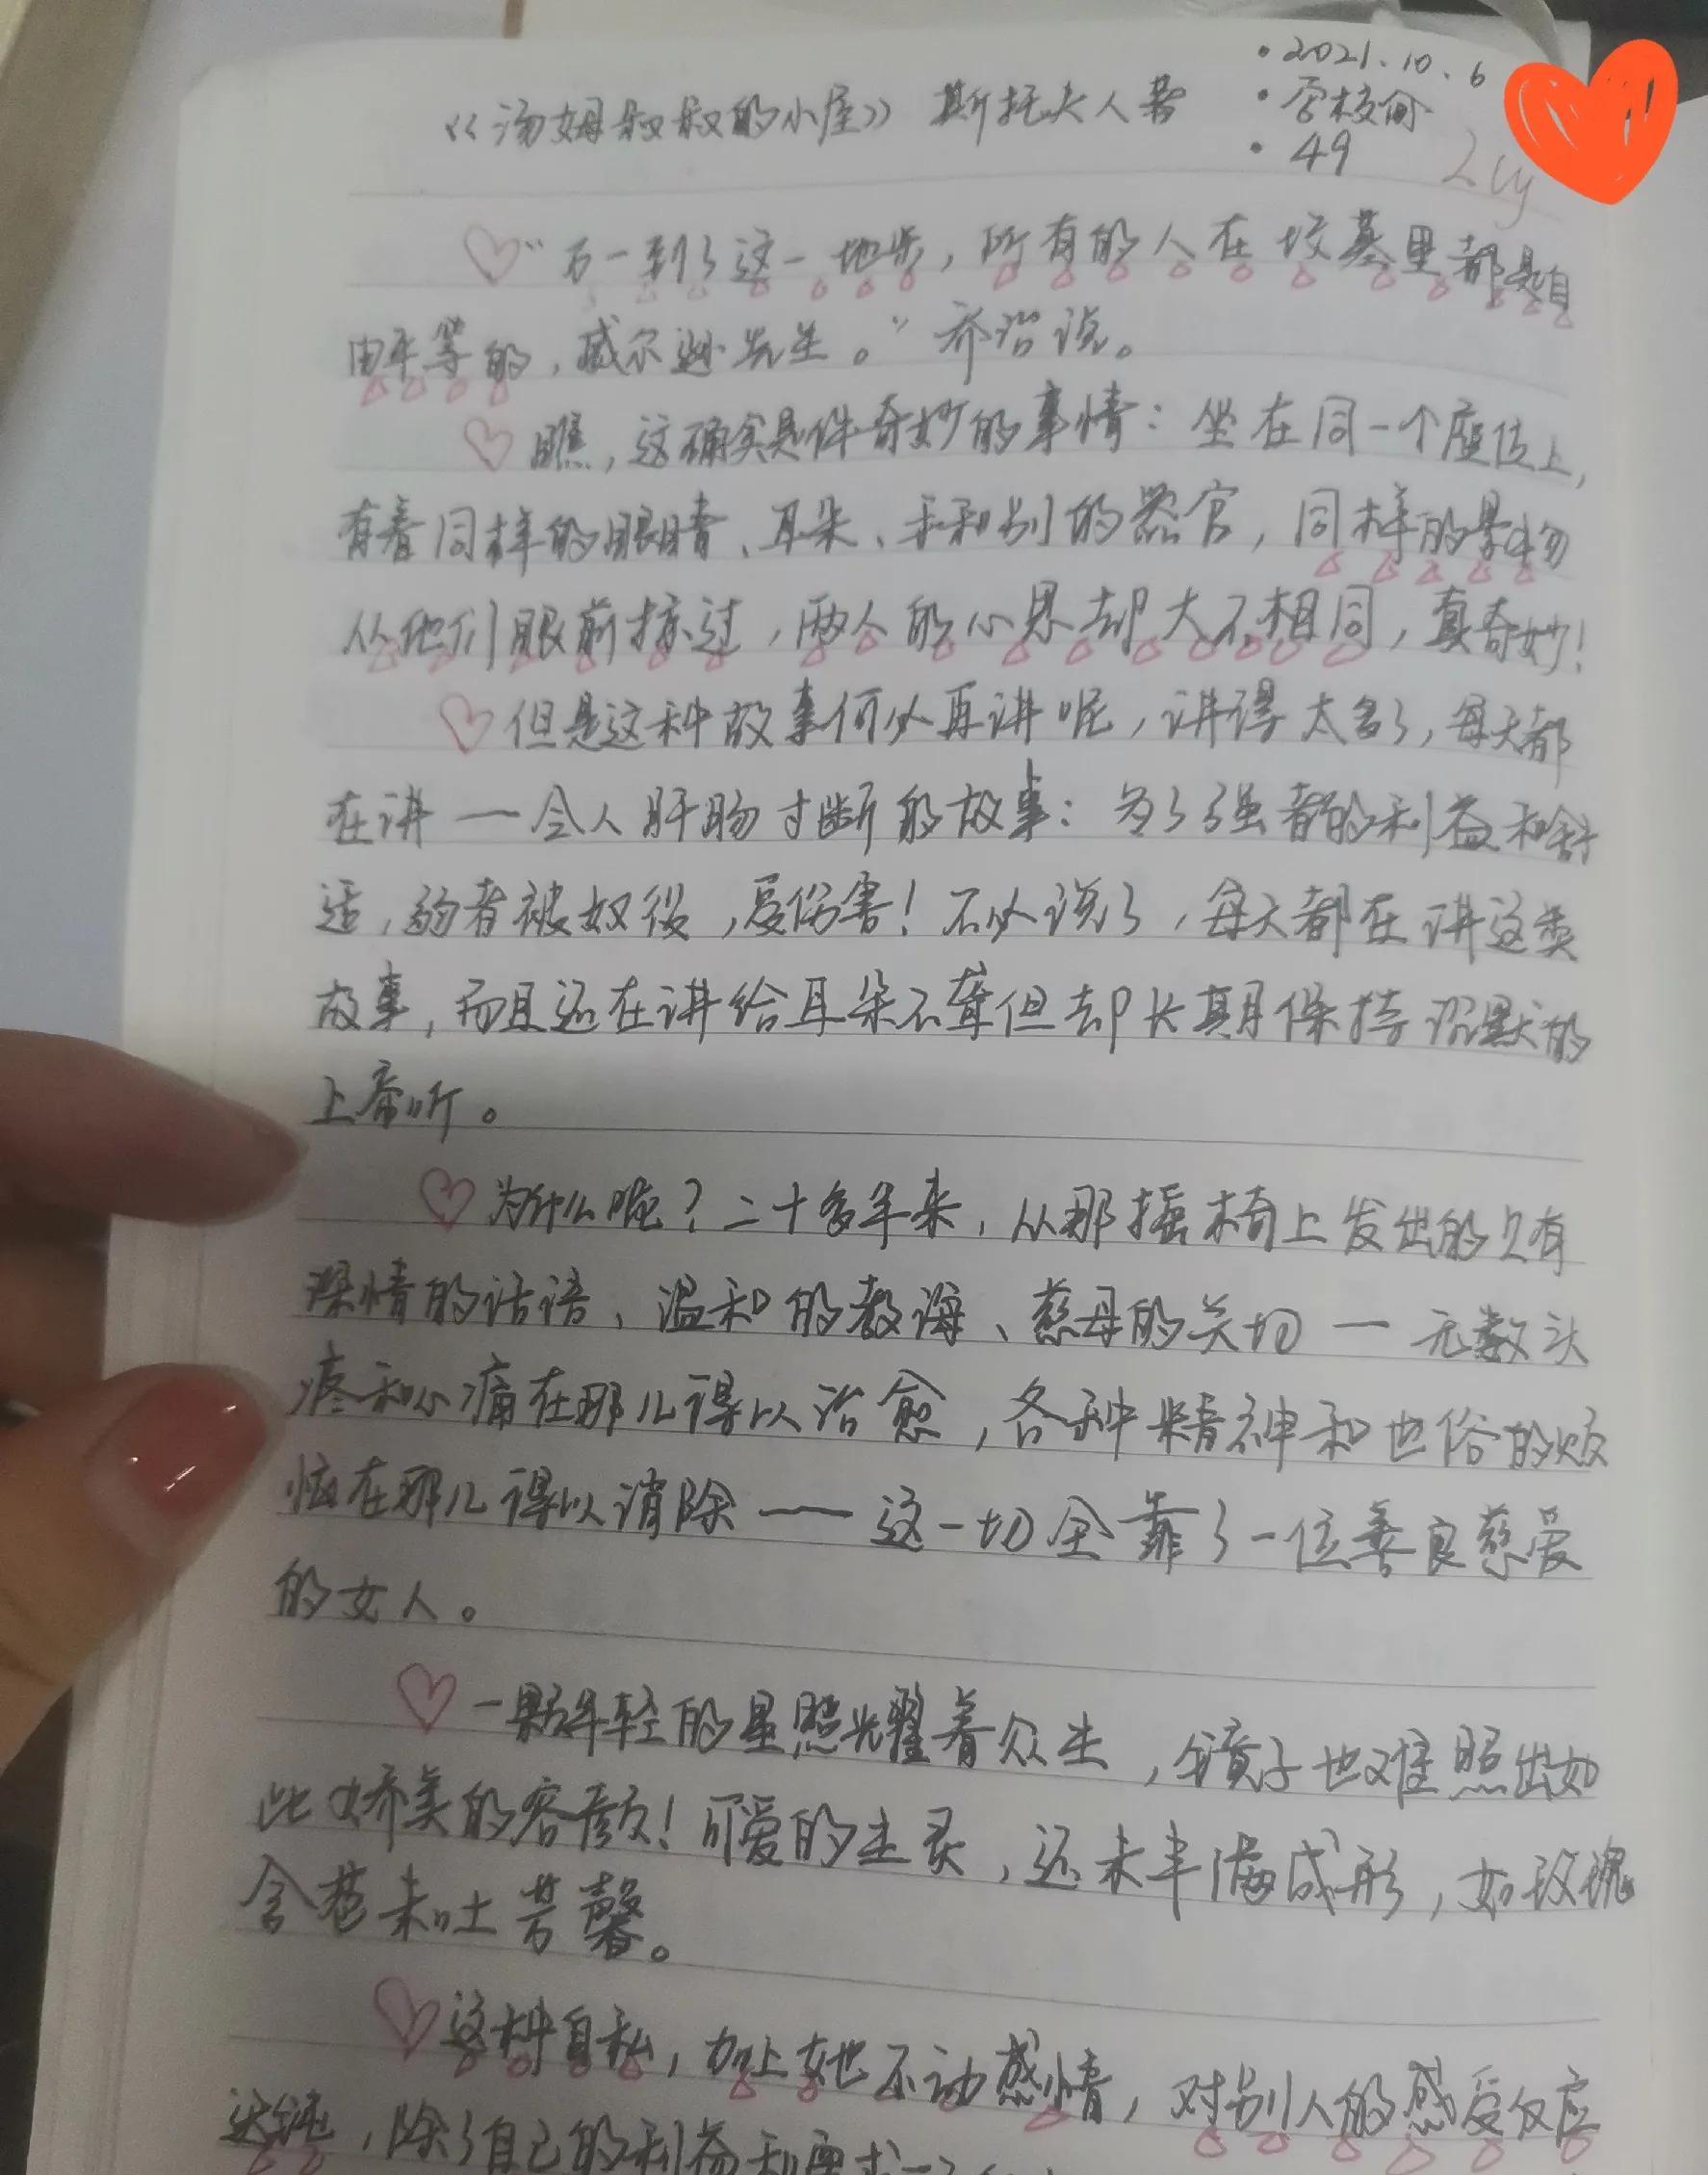 • 2021.10.6
《汤姆叔叔的小屋》 斯托夫人著
• 学校
• 49
Lly
“万一到了这一地步，所有的人在坟墓里都是自
由平等的，威尔逊先生。”乔治说。
瞧，这确实是件奇妙的事情：坐在同一个座位上，
有着同样的眼睛、耳朵、手和别的器官，同样的景物
从他们眼前掠过，两人的心思却大不相同，真奇妙！
但是这种故事何必再讲呢，讲得太多了，每天都
在讲一令人肝肠寸断的故事：为了强者的利益和舒
适，弱者被奴役，受伤害！不必说了，每天都在讲这类
故事，而且还在讲给耳朵不聋但却长期保持沉默的
上帝听。
为什么呢？二十多年来，从那摇椅上发出的只有
深情的话语、温和的教诲、慈母的关切一无数头
疼和心痛在那儿得以治愈，各种精神和世俗的烦
恼在那儿得以消除——这一切全靠了一位善良慈爱
的女人。
一颗年轻的星照光耀着众生，镜子也难照出如
此娇美的容颜！可爱的生灵，还未丰满成形，如玫瑰
含苞未吐芳馨。
这种自私，加上她不动感情，对别人的感受反应
迟钝，除了自己的利益和要求